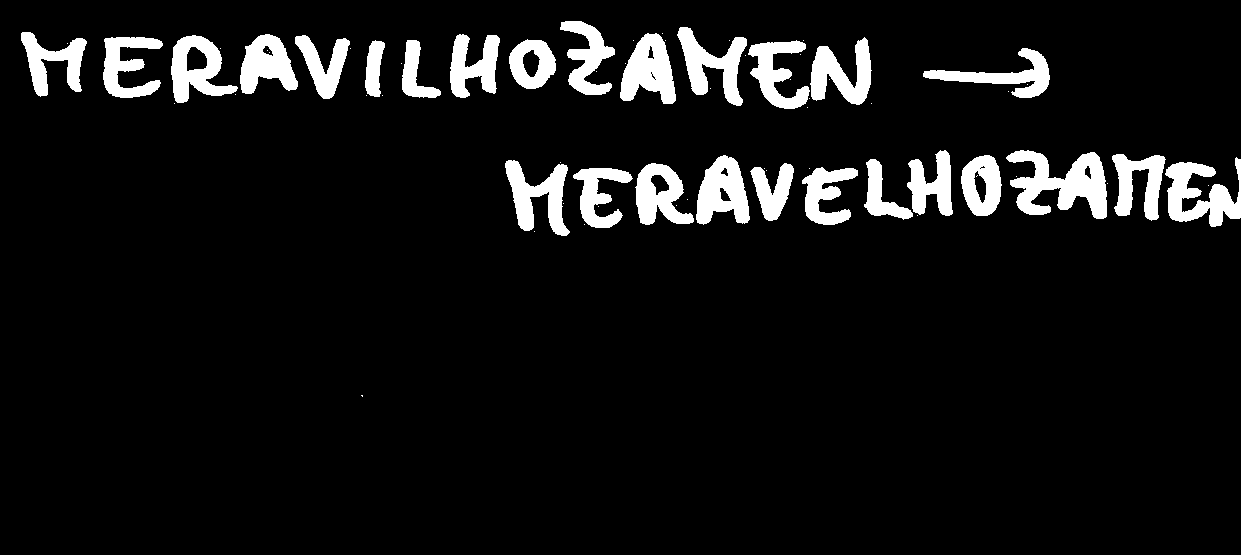 MERAVILHOZAMEN →
MERAVELHOZAMEN